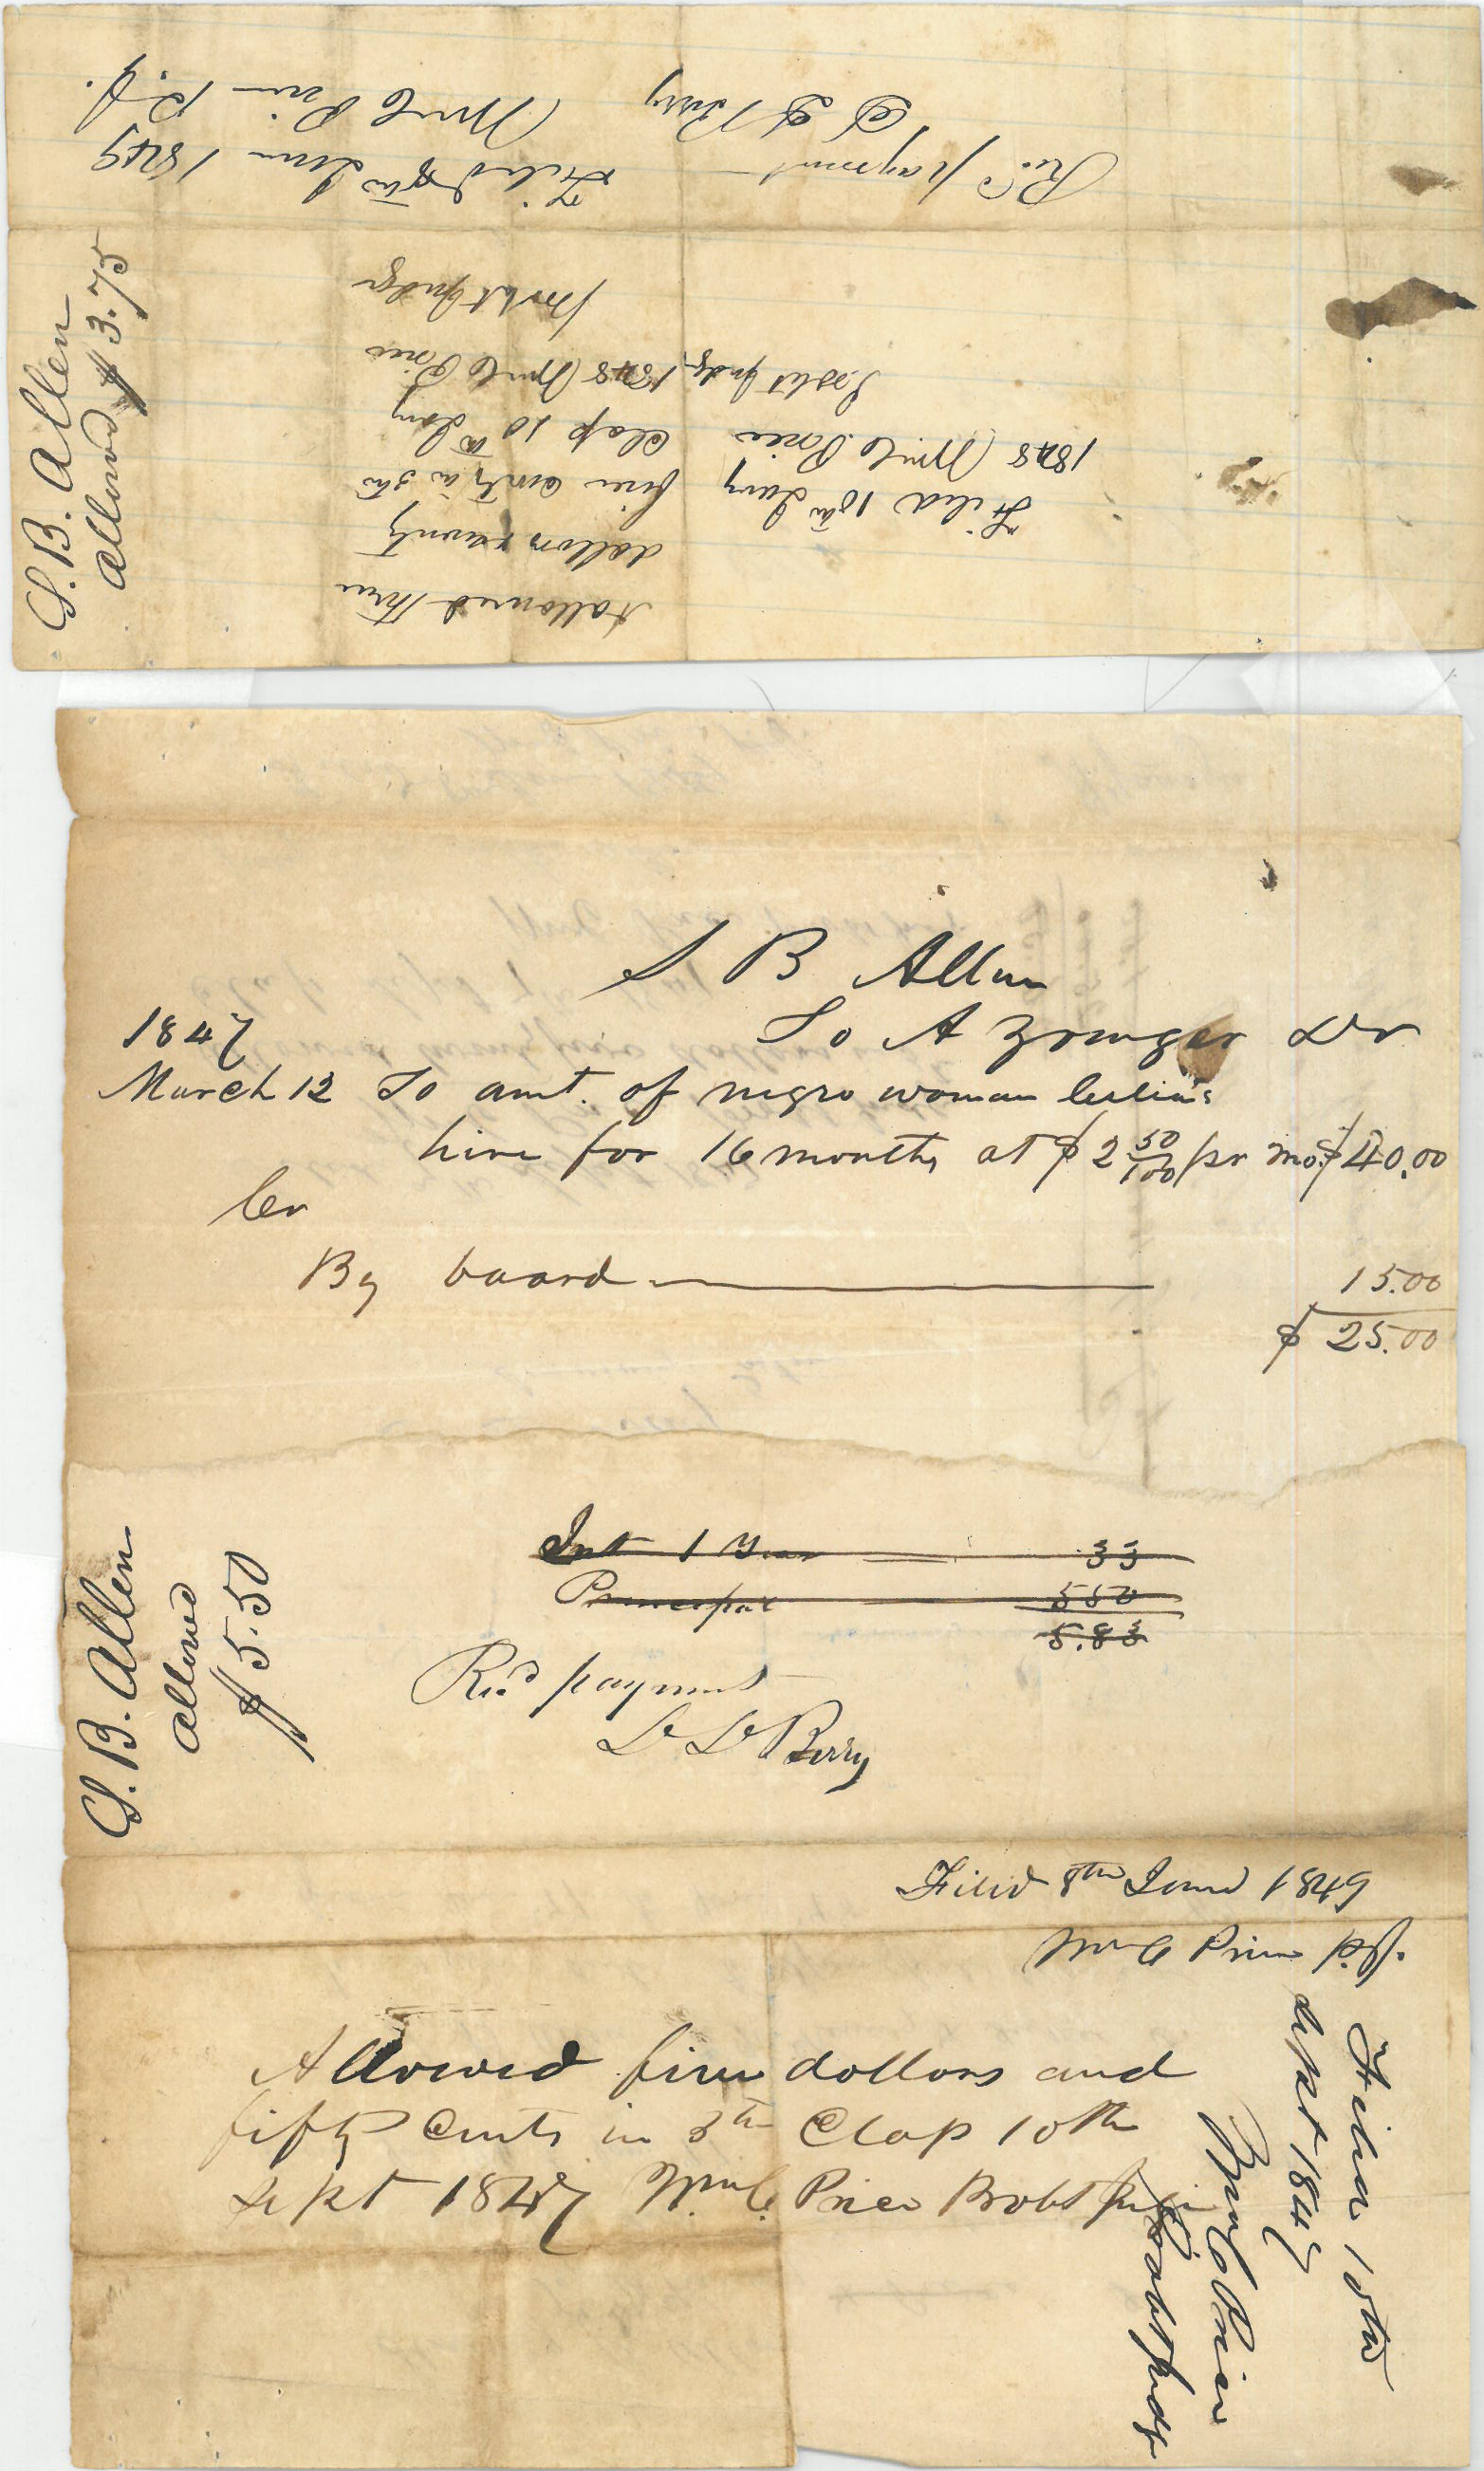 S. B. Allen
Allowed $3.75
Allowed three
dollars seventy
five cents in 5th
Clap 10th Jany
1848 Wm C Price
Probt Judge
Filed 10th Jany
1848 Wm C Price
Probt Judge
Recd payment
D D Berry
Filed 8th June 1849
Wm C Price P.J.
S B Allen
1847 To A Yeunger Dr
March 12 To amt. of negro woman
hire for 16 months at $2 50/100 pr mo. $40.00
Cr
By board 15.00
$ 25.00
S. B. Allen
Allowed
$5.50
Int 1 Year 33
Principal 550
5.83
Recd payment
D D Berry
Filed 8th June 1849
Wm C Price P.J.
Allowed five dollars and
fifty Cents in 5th Clap 10th
Sept 1847 Wm C. Price Probt Judge
Filed 10th
Sept 1847
Wm C Price
Probt Judge